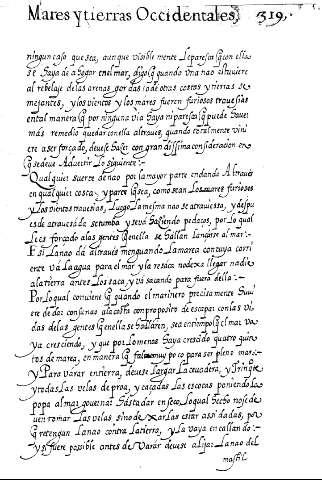 Mares y tierras Occidentales, 319.
ningun caso que sea, aunque visible mente le paresca q̃ con ella
se haya de ahogar en el mar, digo q̃ quando vna nao estuviere
al rebelaje de las arenas, por das o de otras costas y tierras se
mejantes, y los vientos y los mares fueren furiosos travesias
en tal manera q̃ por ninguna via haya ni paresca q̃ puede haver
mas remedio q̃ dar con ella altraves, quando totalmente vini
ere a ser forçado, devese hazer con grandissima consideraçion en
q̃ se deve Advertir Lo siguiente:
Qualquier suerte de nao por la mayor parte en dando Altraves
en qualquier costa, y parte q̃ sea, como sean Los mares furiosos
y los vientos travesias, Luego La mesma nao se atraviessa, y despu
es de atravesada se tumba y se va haziendo pedaços, por lo qual
Les es forçado a las gentes q̃ en ella se hallan Lançarse al mar:
E si La nao da altraves menguando La marea con cuya corri
ente va La agua para el mar y la resaca no dexa llegar nadie
a la tierra antes Los saca y va sacando para fuera della:
Por lo qual conviene q̃ quando el marinero precisamente huvi
ere de dar con su nao a la costa con proposito de escapar con las vi
das de las gentes q̃ en ella se hallaren, sea en tiempo q̃ el mar va
ya cresciendo, y que por Lo menos haya crescido quatro quin
tos de marea, en manera q̃ falte muy poco para ser pleno mar:
y Para varar en tierra, devese Largar La cevadera, y Trinquete
y todas Las velas de proa, y caçadas Las escotas poniendo la
popa al mar, governar hasta dar en seco, lo qual hecho no se de
ven tomar Las velas sino dexarlas estar assi dadas, por
q̃ retengan La nao contra La tierra, y La vaya encallando:
y si fuere possible antes de Varar devese alijar La nao del